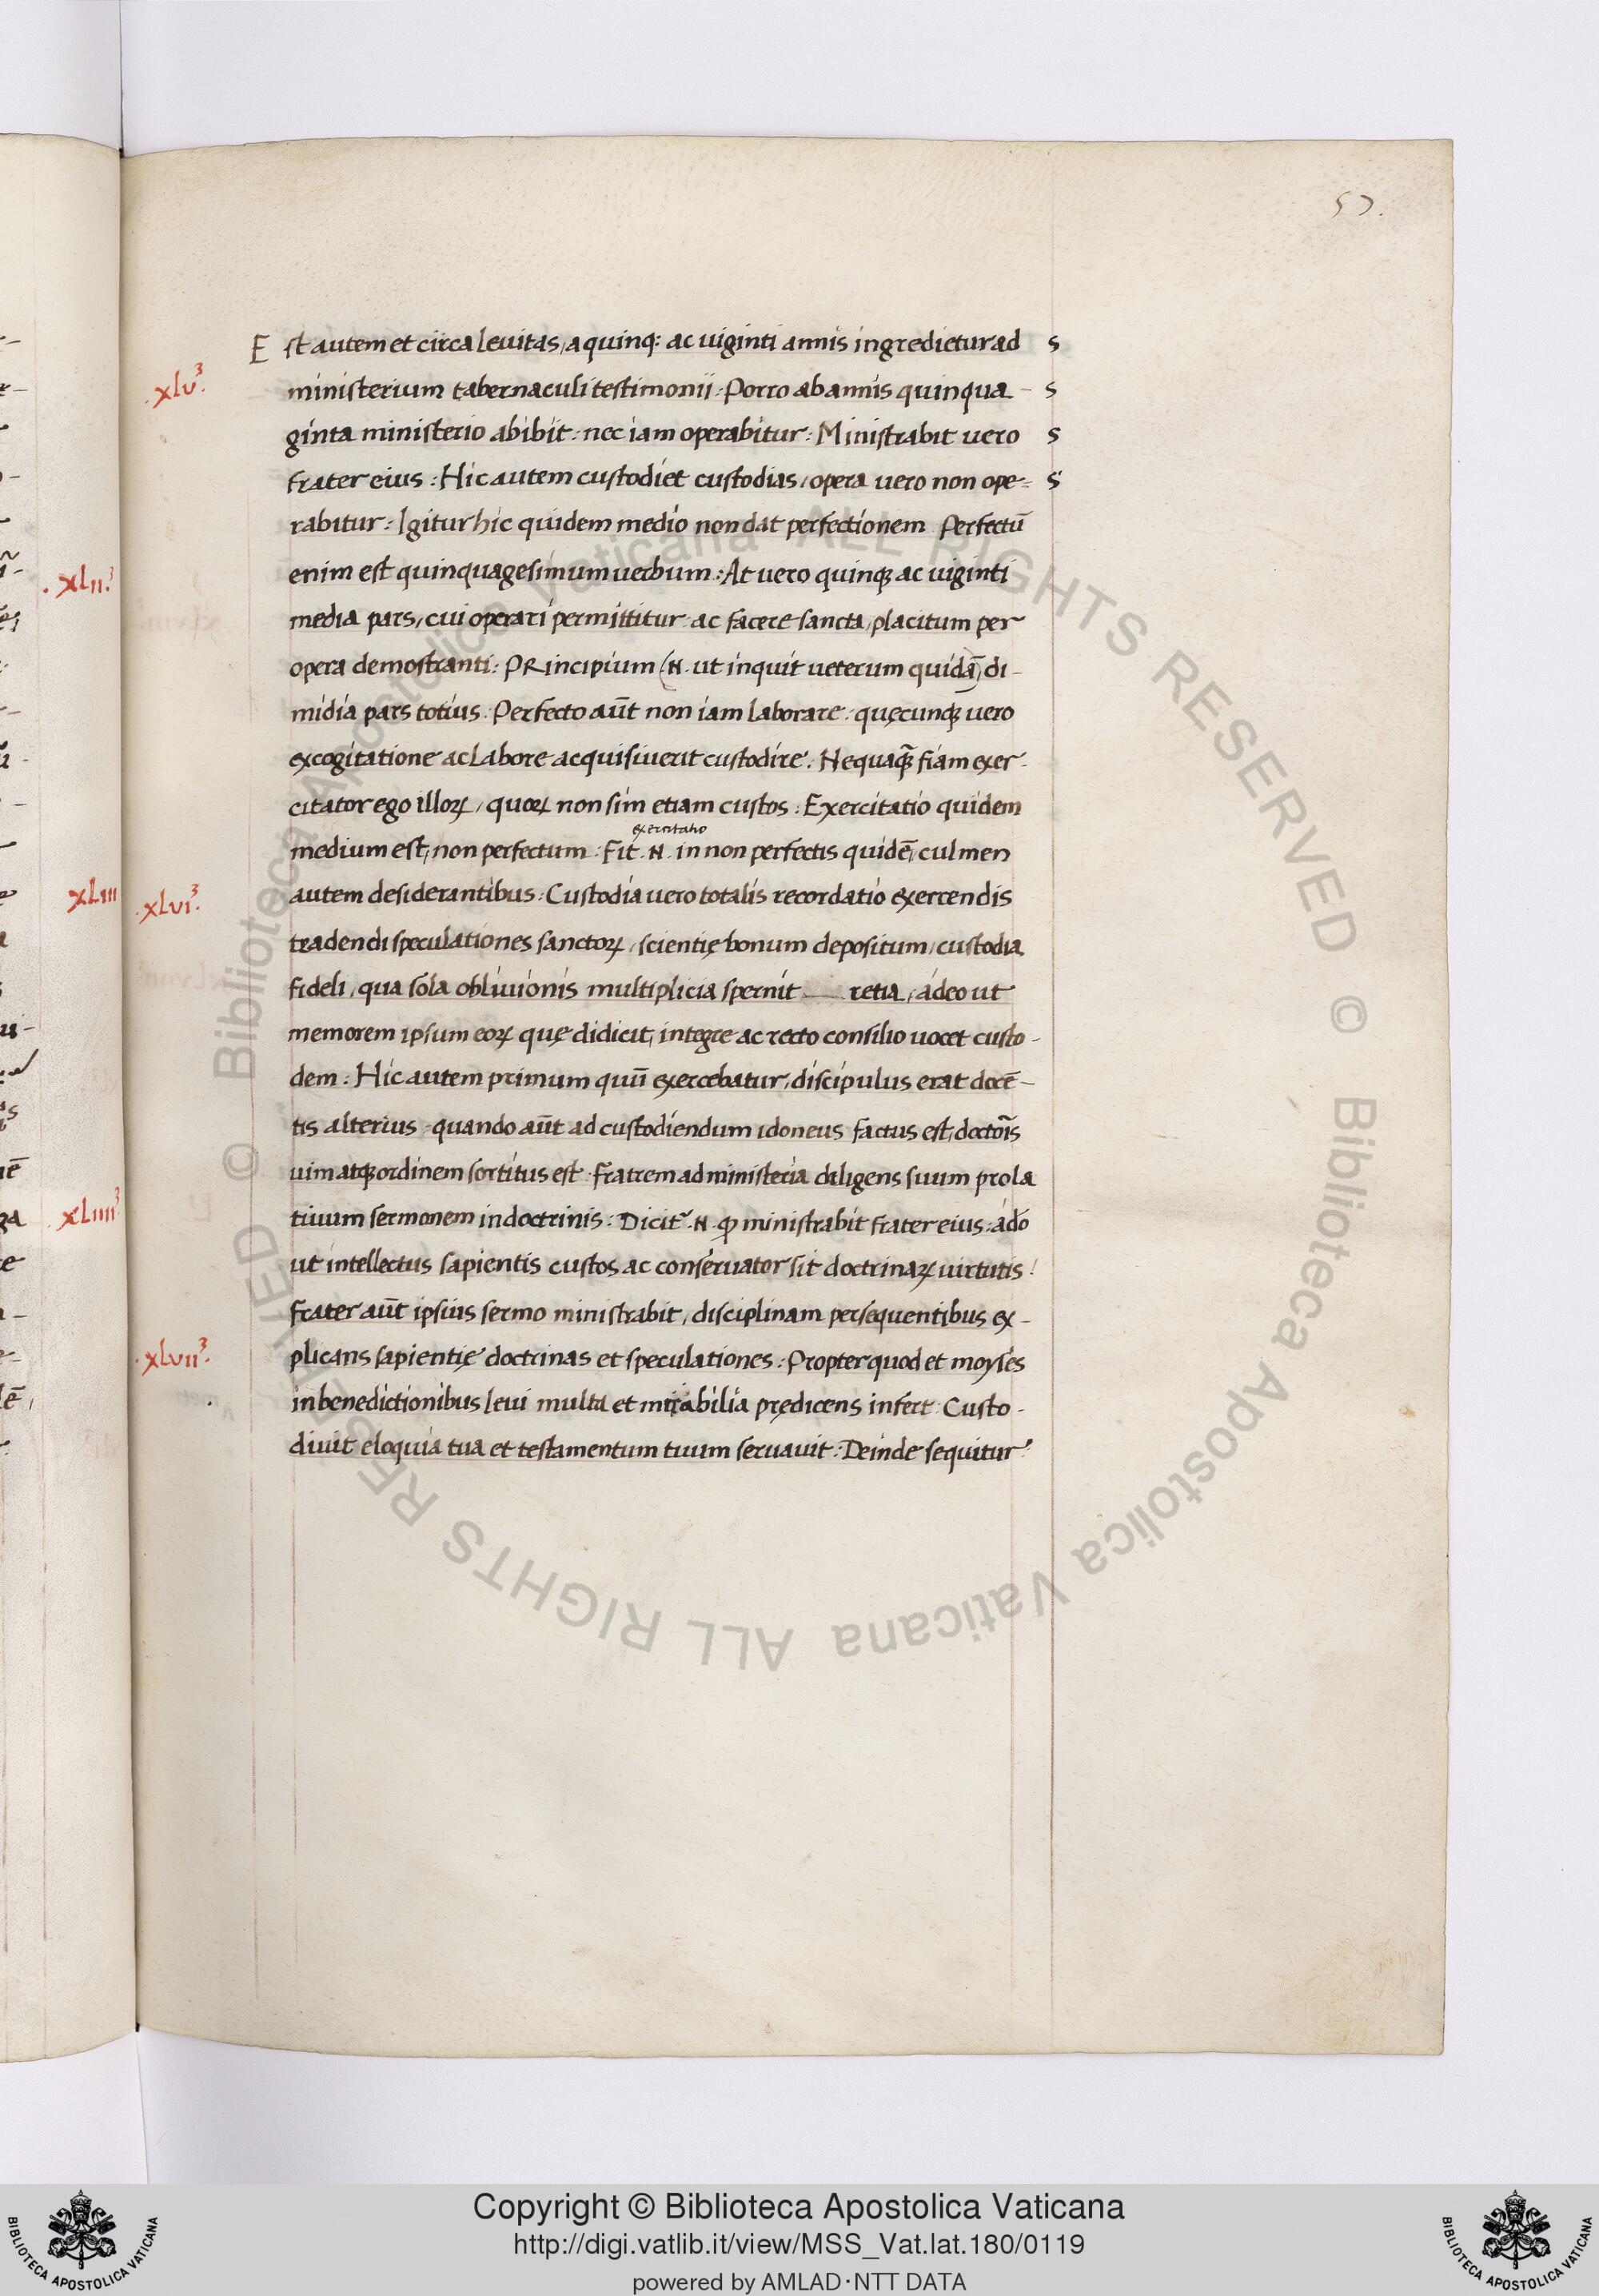 57.
Est autem et circa levitas, a quinq: ac viginti annis ingredietur ad s
.xlv3.
ministerium tabernaculi testimonii: Porro ab annis quinqua- s
ginta ministerio abibit: nec iam operabitur: Ministrabit vero s
frater eius: Hic autem custodiet custodias, opera vero non ope= s
rabitur: Igitur hic quidem medio non dat perfectionem Perfectū
enim est quinquagesimum verbum: At vero quinqꝫ ac viginti
.xlii.3
media pars, cui operari permittitur ac facere sancta, placitum per
opera demostranti: PRincipium (.N. ut inquit veterum quidā) di-
midia pars totius: Perfecto aūt non iam laborare: quęcunqꝫ vero
excogitatione ac labore acquisiverit custodire: Nequaqꝫ̄ fiam exer-
citator ego illoꝝ, quoꝝ non sim etiam custos: Exercitatio quidem
exercitatio
medium est, non perfectum: Fit .N. in non perfectis quidē, culmen
xliii
.xlvi3.
autem desiderantibus: Custodia vero totalis recordatio exercendis
tradendi speculationes sanctoꝝ, scientię bonum depositum, custodia
fideli, qua sola oblivionis multiplicia spernit retia, adeo ut
memorem ipsum eoꝝ quę didicit, integre ac recto consilio vocet custo-
dem: Hic autem primum quū exercebatur, discipulus erat docē-
tis alterius quando aūt ad custodiendum idoneus factus est, doctoīs
vim atqꝫ ordinem sortitus est: fratrem ad ministeria diligens suum prola
.xliiii3
tivum sermonem in doctrinis: Dicit᷑ .N. ꝙ ministrabit frater eius: adō
ut intellectus sapientis custos ac conservator sit doctrinaꝝ virtutis:
frater aūt ipsius sermo ministrabit, disciplinam persequentibus ex-
.xlvii3.
plicans sapientię doctrinas et speculationes: Propter quod et moyses
in benedictionibus levi multa et mirabilia prędicens infert: Custo-
divit eloquia tua et testamentum tuum servavit: Deinde sequitur:
© Biblioteca Apostolica Vaticana ALL RIGHTS RESERVED © Biblioteca Apostolica Vaticana ALL RIGHTS RESERVED
Copyright © Biblioteca Apostolica Vaticana
http://digi.vatlib.it/view/MSS_Vat.lat.180/0119
powered by AMLAD·NTT DATA
BIBLIOTECA APOSTOLICA VATICANA
BIBLIOTECA APOSTOLICA VATICANA